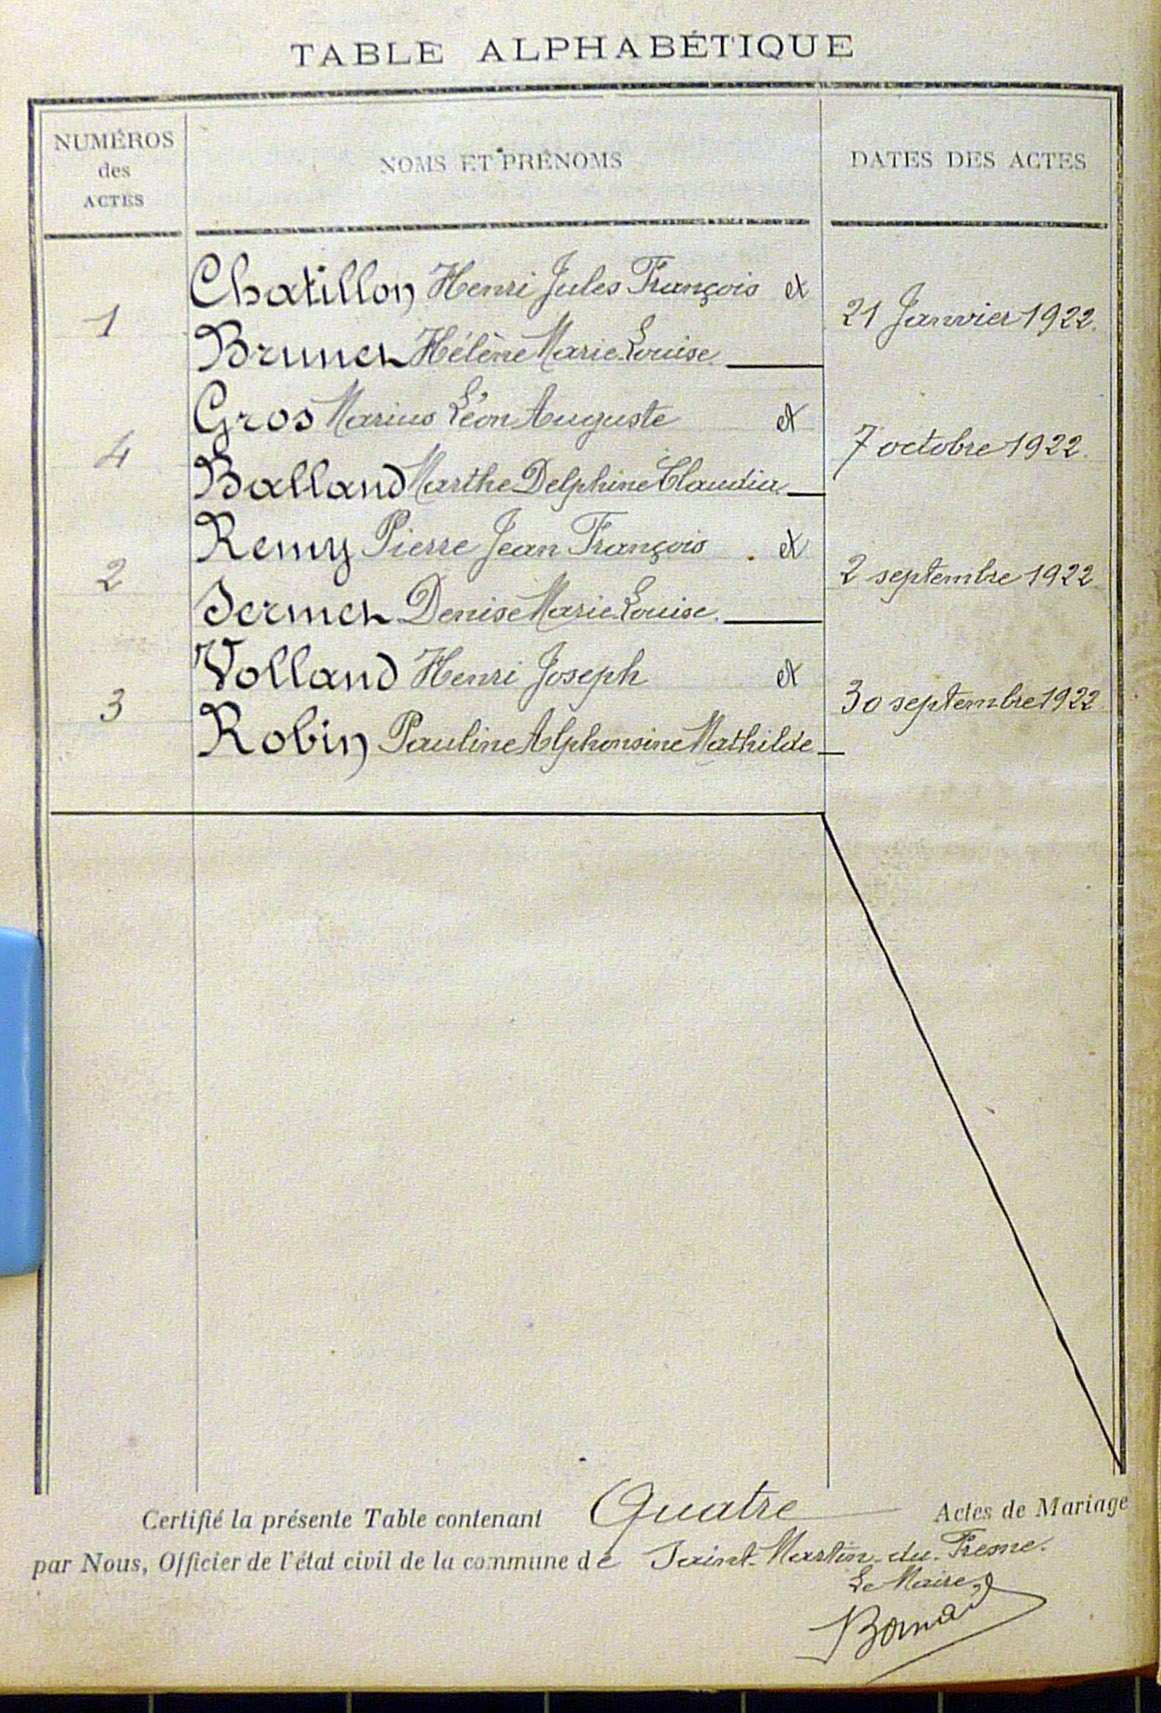 TABLE ALPHABÉTIQUE
NUMÉROS
des
ACTES
NOMS ET PRÉNOMS
DATES DES ACTES
Chatillon Henri Jules François et
1
21 Janvier 1922.
Brunet Hélène Marie Louise
Gros Marius Léon Auguste et
4
7 octobre 1922.
Balland Marthe Delphine Claudia
Remy Pierre Jean François et
2
2 septembre 1922
Jermet Denise Marie Louise.
Volland Henri Joseph et
3
30 septembre 1922
Robin Pauline Alphonsine Mathilde
Certifié la présente Table contenant Quatre Actes de Mariage
par Nous, Officier de l'état civil de la commune de Saint-Martin-du-Fresne.
Le Maire,